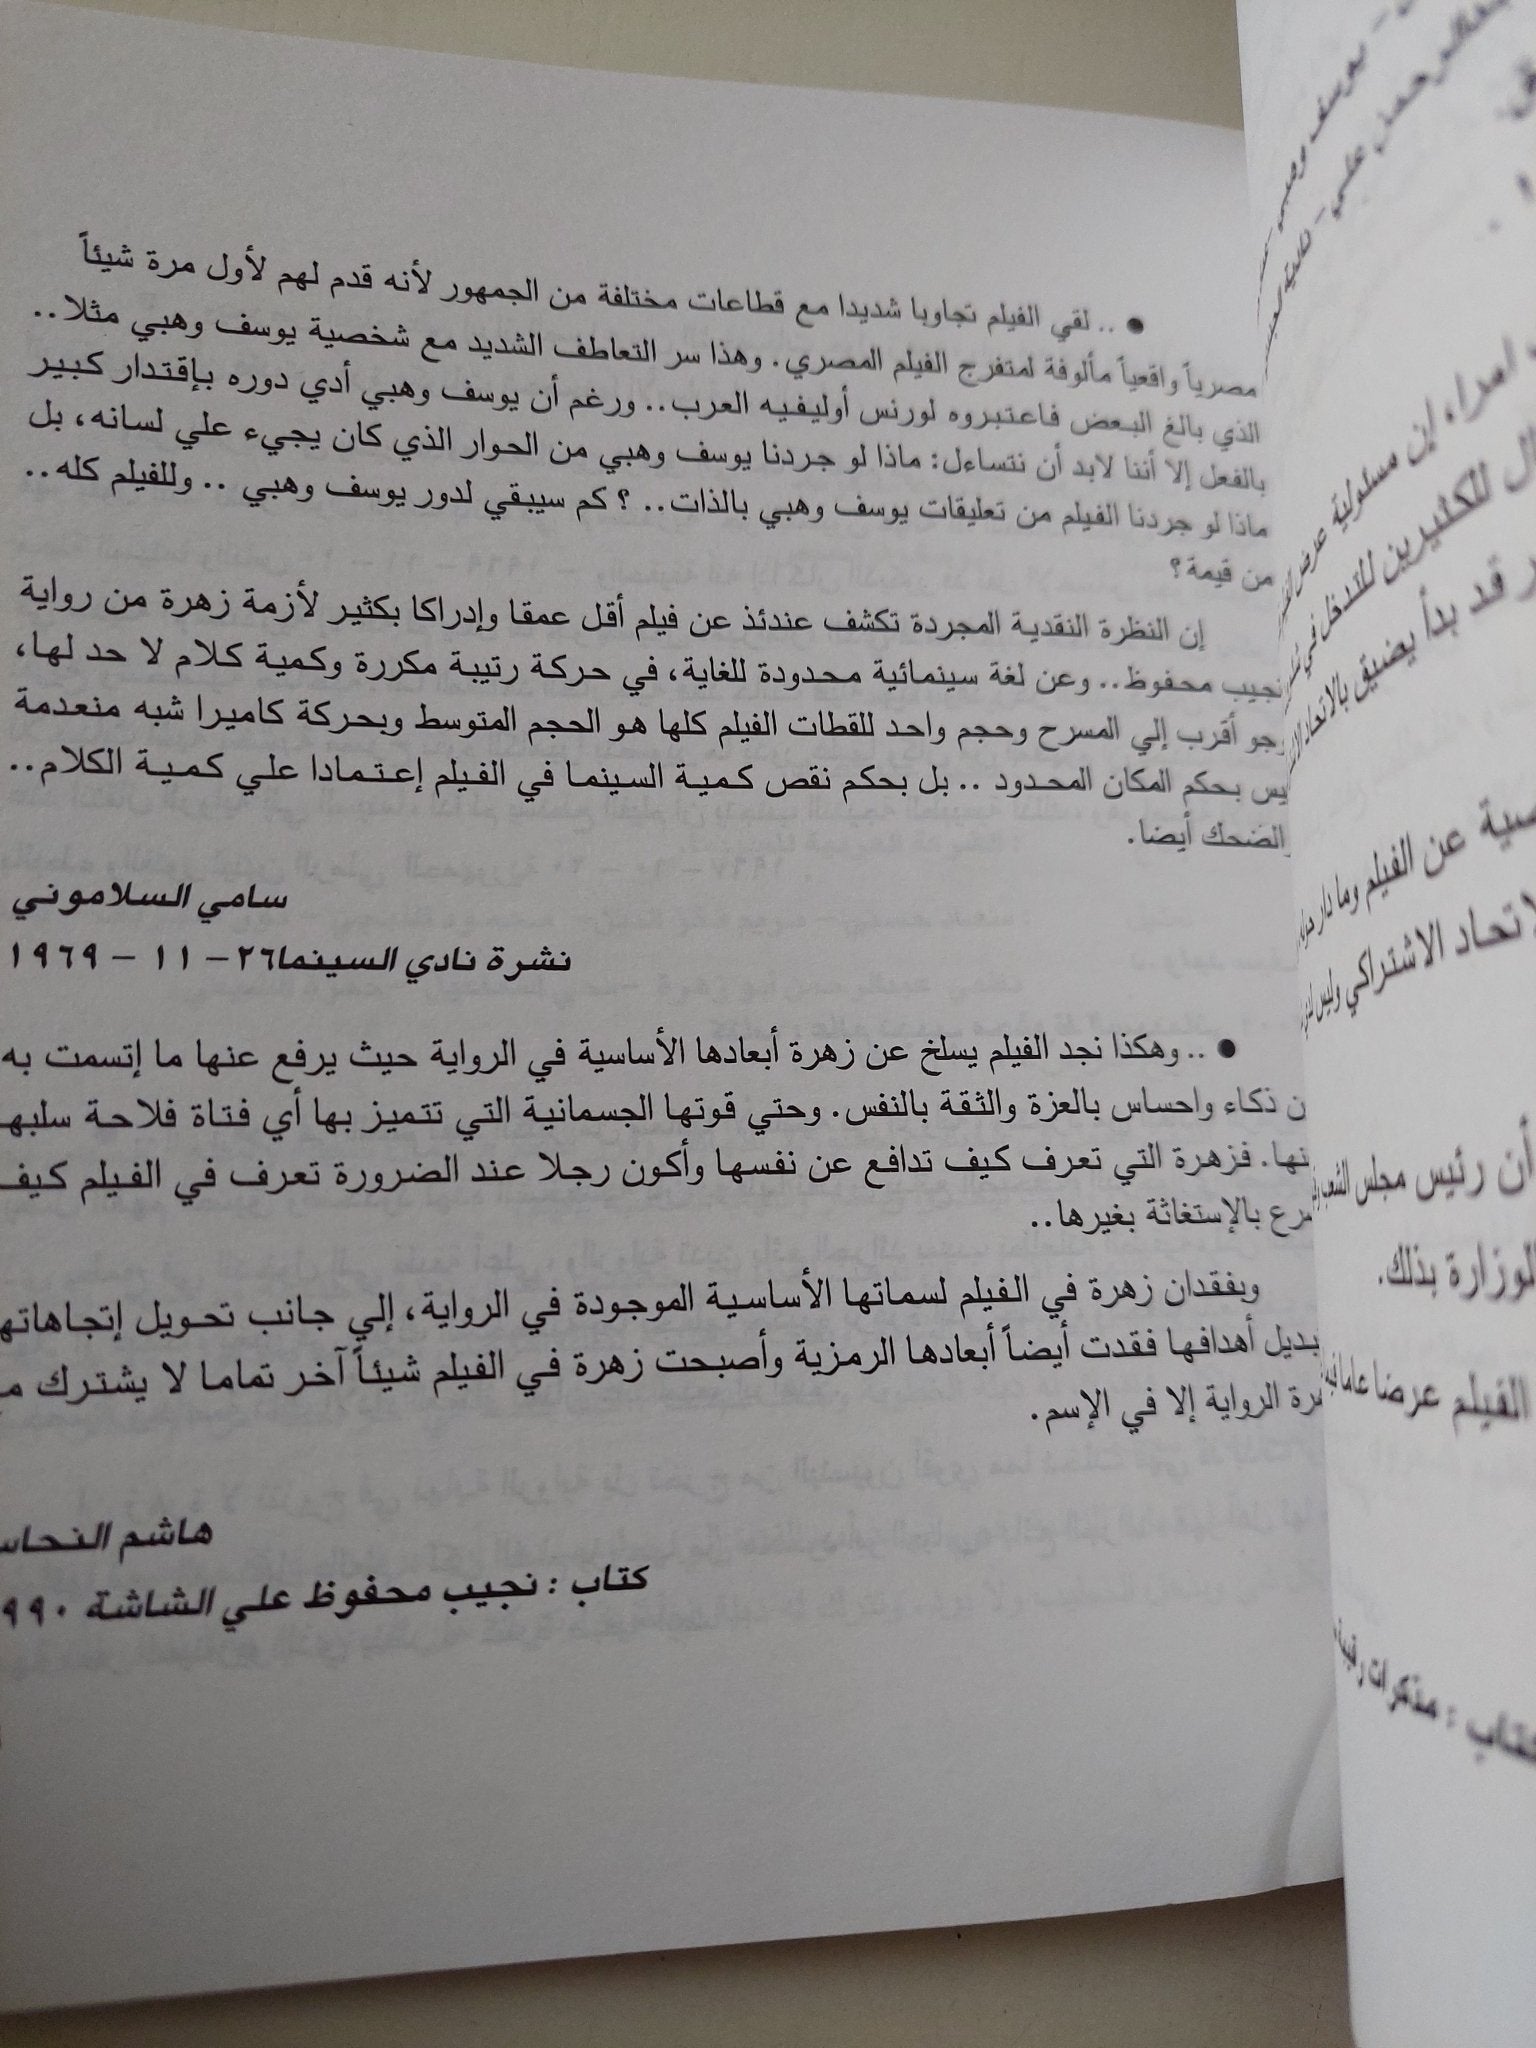 ● .. لقي الفيلم تجاوبا شديدا مع قطاعات مختلفة من الجمهور لأنه قدم لهم لأول مرة شيئاً
مصرياً واقعياً مألوفة لمتفرج الفيلم المصري. وهذا سر التعاطف الشديد مع شخصية يوسف وهبي مثلا..
الذي بالغ البعض فاعتبروه لورنس أوليفيه العرب.. ورغم أن يوسف وهبي أدي دوره بإقتدار كبير
بالفعل إلا أننا لابد أن نتساءل: ماذا لو جردنا يوسف وهبي من الحوار الذي كان يجيء علي لسانه، بل
ماذا لو جردنا الفيلم من تعليقات يوسف وهبي بالذات.. ؟ كم سيبقي لدور يوسف وهبي .. وللفيلم كله..
من قيمة؟
إن النظرة النقدية المجردة تكشف عندئذ عن فيلم أقل عمقا وإدراكا بكثير لأزمة زهرة من رواية
نجيب محفوظ.. وعن لغة سينمائية محدودة للغاية، في حركة رتيبة مكررة وكمية كلام لا حد لها،
وجو أقرب إلي المسرح وحجم واحد للقطات الفيلم كلها هو الحجم المتوسط وبحركة كاميرا شبه منعدمة
يس بحكم المكان المحدود .. بل بحكم نقص كمية السينما في الفيلم إعتمادا علي كمية الكلام..
والضحك أيضا.
سامي السلاموني
نشرة نادي السينما٢٦- ١١ - ١٩٦٩
● .. وهكذا نجد الفيلم يسلخ عن زهرة أبعادها الأساسية في الرواية حيث يرفع عنها ما إتسمت به
ن ذكاء واحساس بالعزة والثقة بالنفس. وحتي قوتها الجسمانية التي تتميز بها أي فتاة فلاحة سلبها
نها. فزهرة التي تعرف كيف تدافع عن نفسها وأكون رجلا عند الضرورة تعرف في الفيلم كيف
سرع بالإستغاثة بغيرها..
وبفقدان زهرة في الفيلم لسماتها الأساسية الموجودة في الرواية، إلي جانب تحويل إتجاهاتها
بديل أهدافها فقدت أيضاً أبعادها الرمزية وأصبحت زهرة في الفيلم شيئاً آخر تماما لا يشترك م
رة الرواية إلا في الإسم.
هاشم النحاس
كتاب : نجيب محفوظ علي الشاشة ٩٩٠
- يوسف وهبي -
علي - نادية
امراء إن مسئولية عرض
للكثيرين للتدخل في
قد بدأ يضيق بالاتحاد
عن الفيلم وما دار حوله
لاتحاد الاشتراكي وليس لدي
أن رئيس مجلس الشعب
لوزارة بذلك.
الفيلم عرضا عاما فيه
كتاب : مذكرات رقيبة